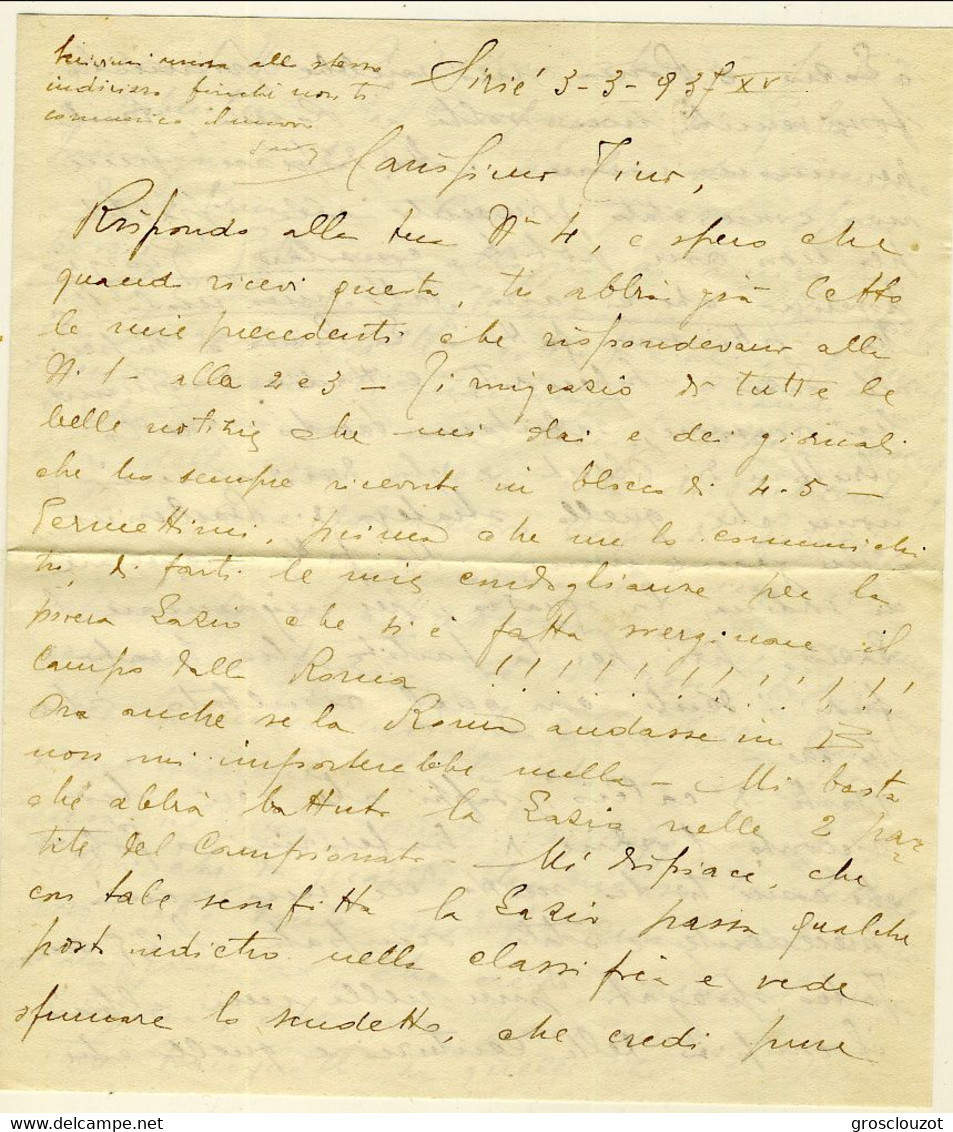 Scrivimi ancora allo stesso
indirizzo finché non ti
comunico il nuovo
Sirié 3-3-937 XV
Carissimo Tino,
Rispondo alla tua Nº 4, e spero che
quando ricevi questa, tu abbia già letto
le mie precedenti che rispondevano alla
N. 1 - alla 2 e 3 - Ti ringrazio di tutte le
belle notizie che mi dai e dei giornali
che ho sempre ricevuto in blocco di 4-5 -
Permettimi, prima che me lo comunichi
tu, di farti le mie condoglianze per la
povera Lazio che si è fatta sverginare il
campo dalla Roma !!!!!!!!!!!!
Ora anche se la Roma andasse in B
non mi importerebbe nulla - Mi basta
che abbia battuto la Lazio nelle 2 par=
tite del Campionato - Mi dispiace, che
con tale sconfitta la Lazio passa qualche
posto indietro nella classifica e vede
sfumare lo scudetto, che credi pure
grosclouzot
delcampe.net